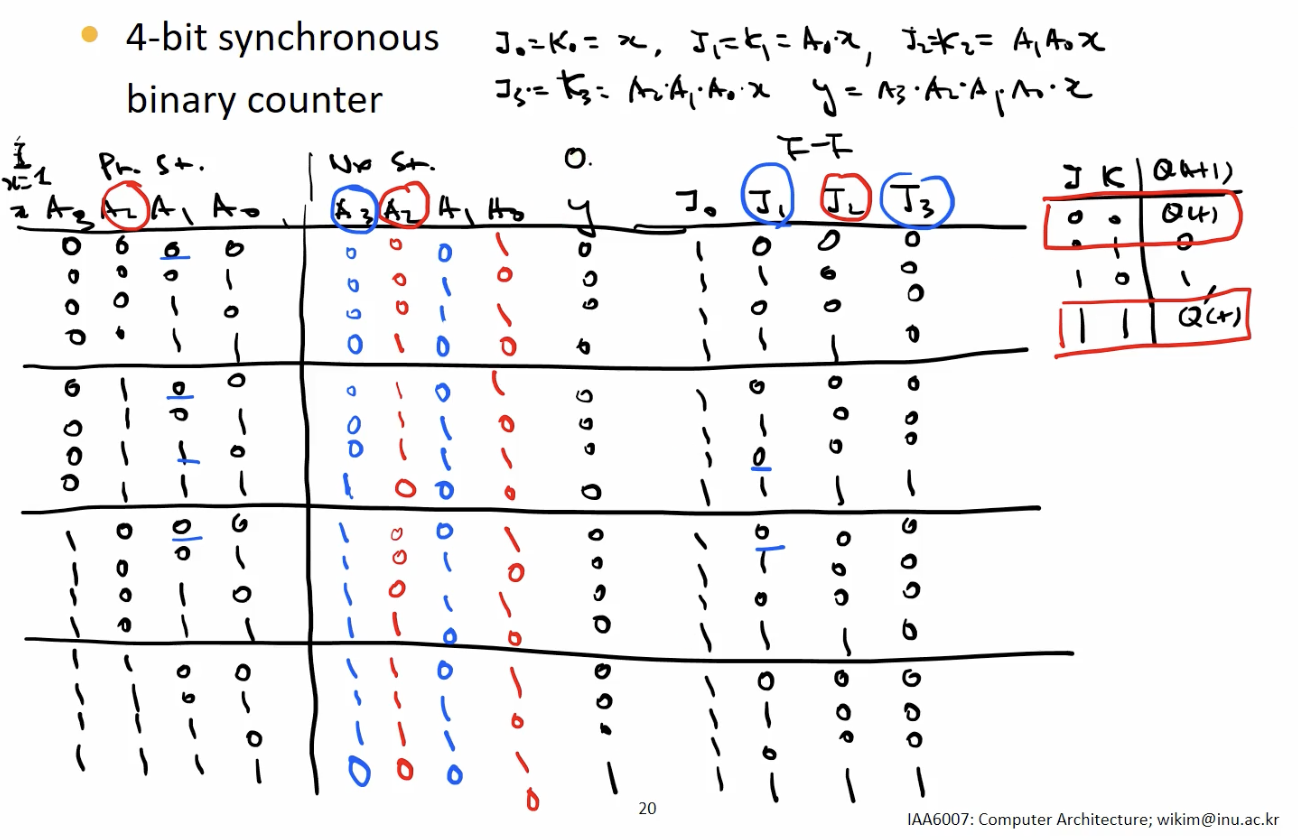 4-bit synchronous
binary counter
J₀=K₀= x, J₁=K₁= A₀·x, J₂=K₂= A₁A₀x
J₃= K₃= A₂·A₁·A₀·x y = A₃·A₂·A₁·A₀·x
I Pr. St. Nx St. O. F-F
x=1
x A₃ A₂ A₁ A₀ A₃ A₂ A₁ A₀ y J₀ J₁ J₂ J₃
0 0 0 0 0 0 0 1 0 1 0 0 0
0 0 0 1 0 0 1 0 0 1 1 0 0
0 0 1 0 0 0 1 1 0 1 0 0 0
0 0 1 1 0 1 0 0 0 1 1 1 0
0 1 0 0 0 1 0 1 0 1 0 0 0
0 1 0 1 0 1 1 0 0 1 1 0 0
0 1 1 0 0 1 1 1 0 1 0 0 0
0 1 1 1 1 0 0 0 0 1 1 1 1
1 0 0 0 1 0 0 1 0 1 0 0 0
1 0 0 1 1 0 1 0 0 1 1 0 0
1 0 1 0 1 0 1 1 0 1 0 0 0
1 0 1 1 1 1 0 0 0 1 1 1 0
1 1 0 0 1 1 0 1 0 1 0 0 0
1 1 0 1 1 1 1 0 0 1 1 0 0
1 1 1 0 1 1 1 1 0 1 0 0 0
1 1 1 1 0 0 0 0 1 1 1 1 1
J K Q(t+1)
0 0 Q(t)
0 1 0
1 0 1
1 1 Q'(t)
20
IAA6007: Computer Architecture; wikim@inu.ac.kr